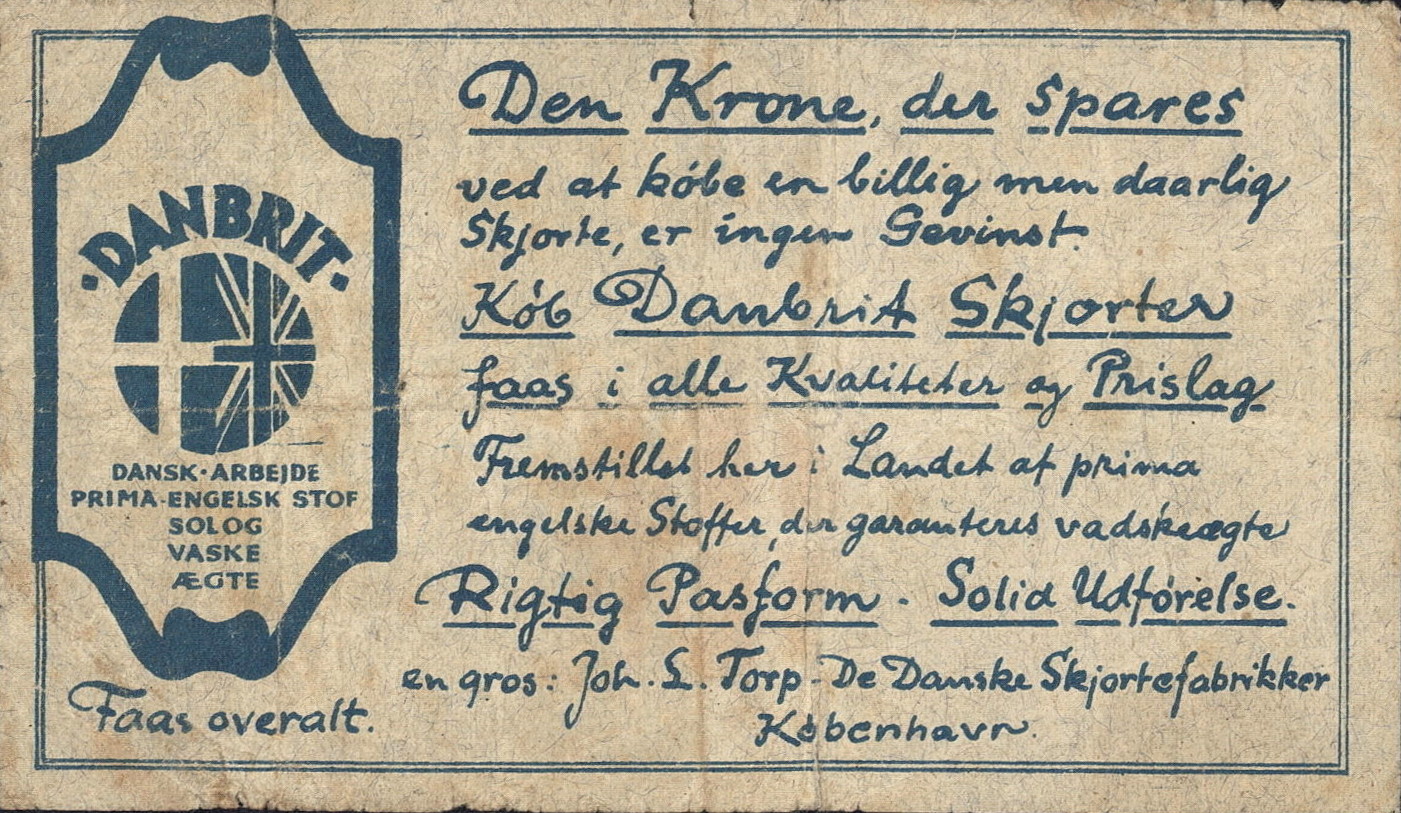 ·DANBRIT·
DANSK·ARBEJDE
PRIMA-ENGELSK STOF
SOLOG
VASKE
ÆGTE
Faas overalt.
Den Krone, der spares
ved at købe en billig men daarlig
Skjorte, er ingen Gevinst.
Køb Danbrit Skjorter
faas i alle Kvaliteter og Prislag
Fremstillet her i Landet af prima
engelske Stoffer, der garanteres vadskeægte
Rigtig Pasform. Solid Udførelse.
en gros: Joh. L. Torp - De Danske Skjortefabrikker
København.